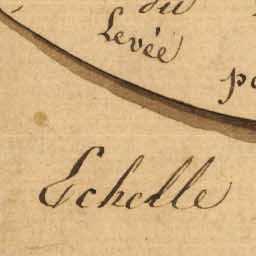 du
Levée
Echelle